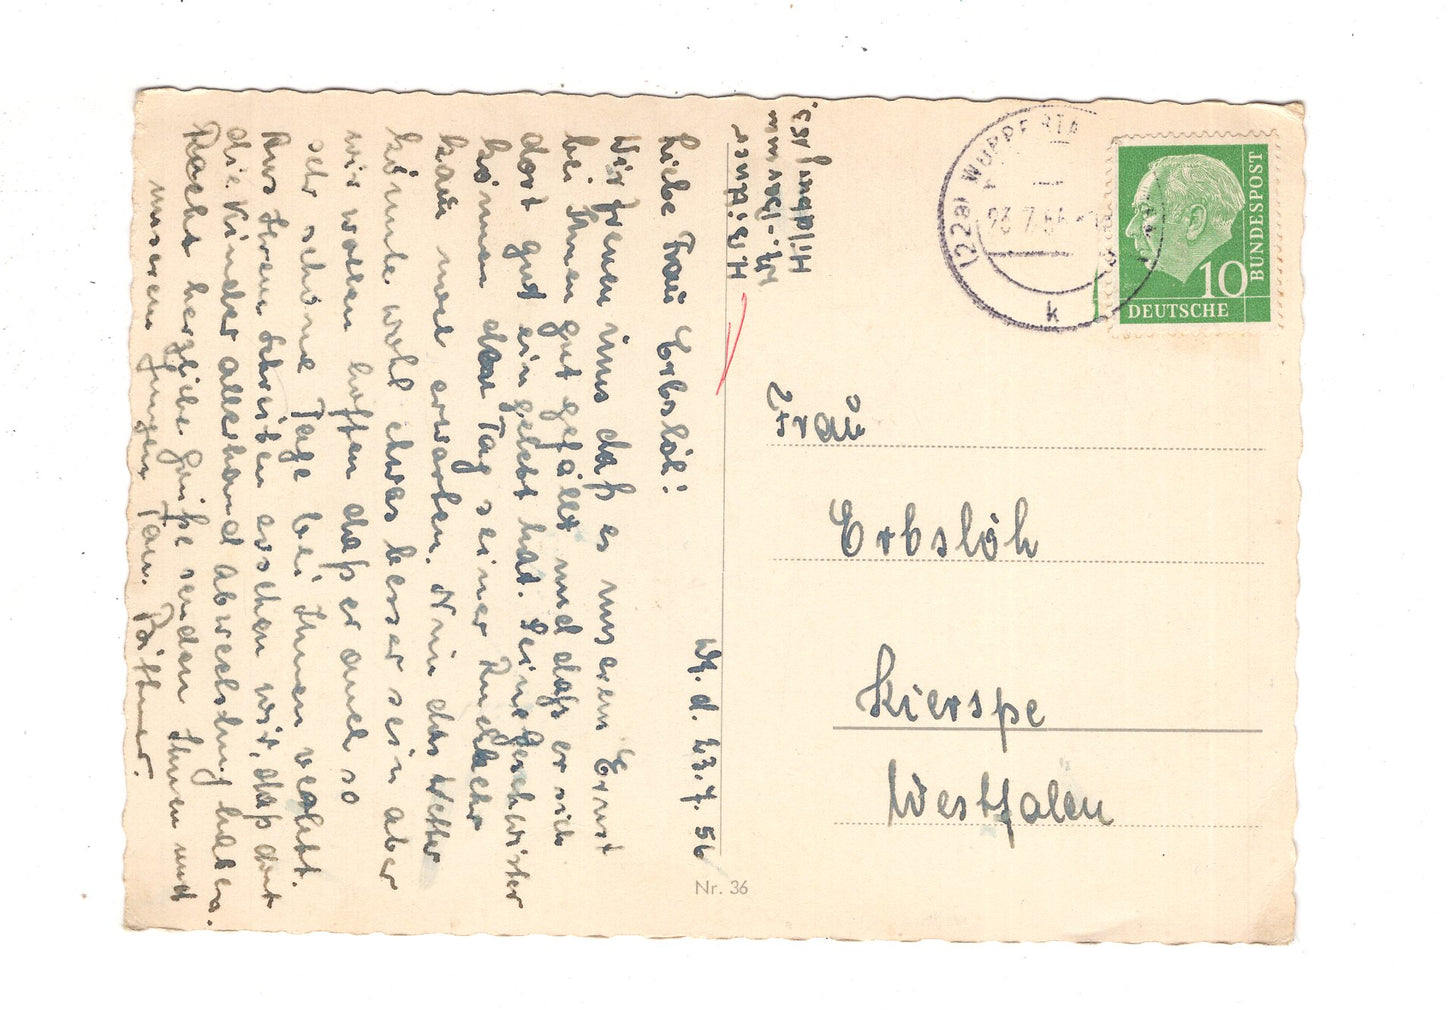 W. d. 23.7.56
Liebe Frau Erbslöh!
Wir freuen uns daß es unserem Ernst
bei Ihnen gut gefällt und daß er sich
dort gut eingelebt hat. Seine Geschwister
können den Tag seiner Rückkehr
kaum noch erwarten. Nun das Wetter
könnte wohl etwas besser sein aber
wir wollen hoffen daß er auch so
sehr schöne Tage bei Ihnen verlebt.
Aus Ihrem Schreiben ersehen wir, daß dort
die Kinder allerhand Abwechslung haben.
Recht herzliche Grüße senden Ihnen und
unserem Jungen Fam. Büttner.
H. Büttner
W.-Barmen
Hildburgstr. 153.
(22a) WUPPERTA
23.7.56
k
DEUTSCHE
BUNDESPOST
10
Frau
Erbslöh
Kierspe
Westfalen
Nr. 36